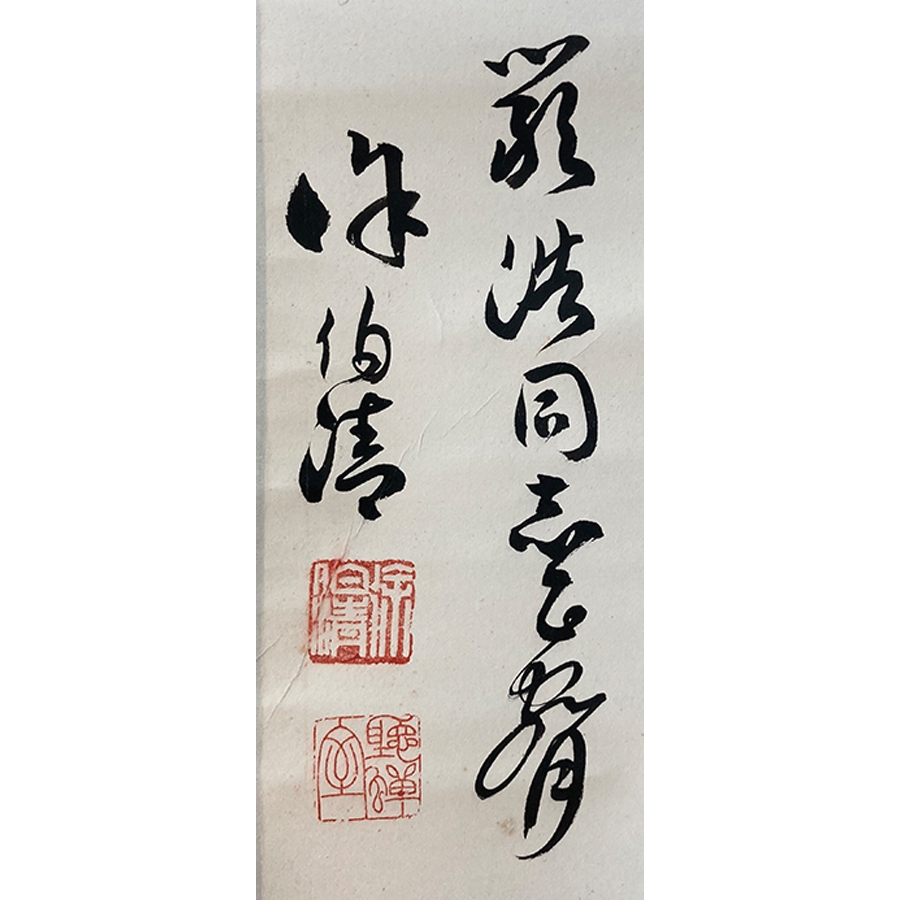 嚴浩同志
徐伯清
徐伯清
聽蟬室